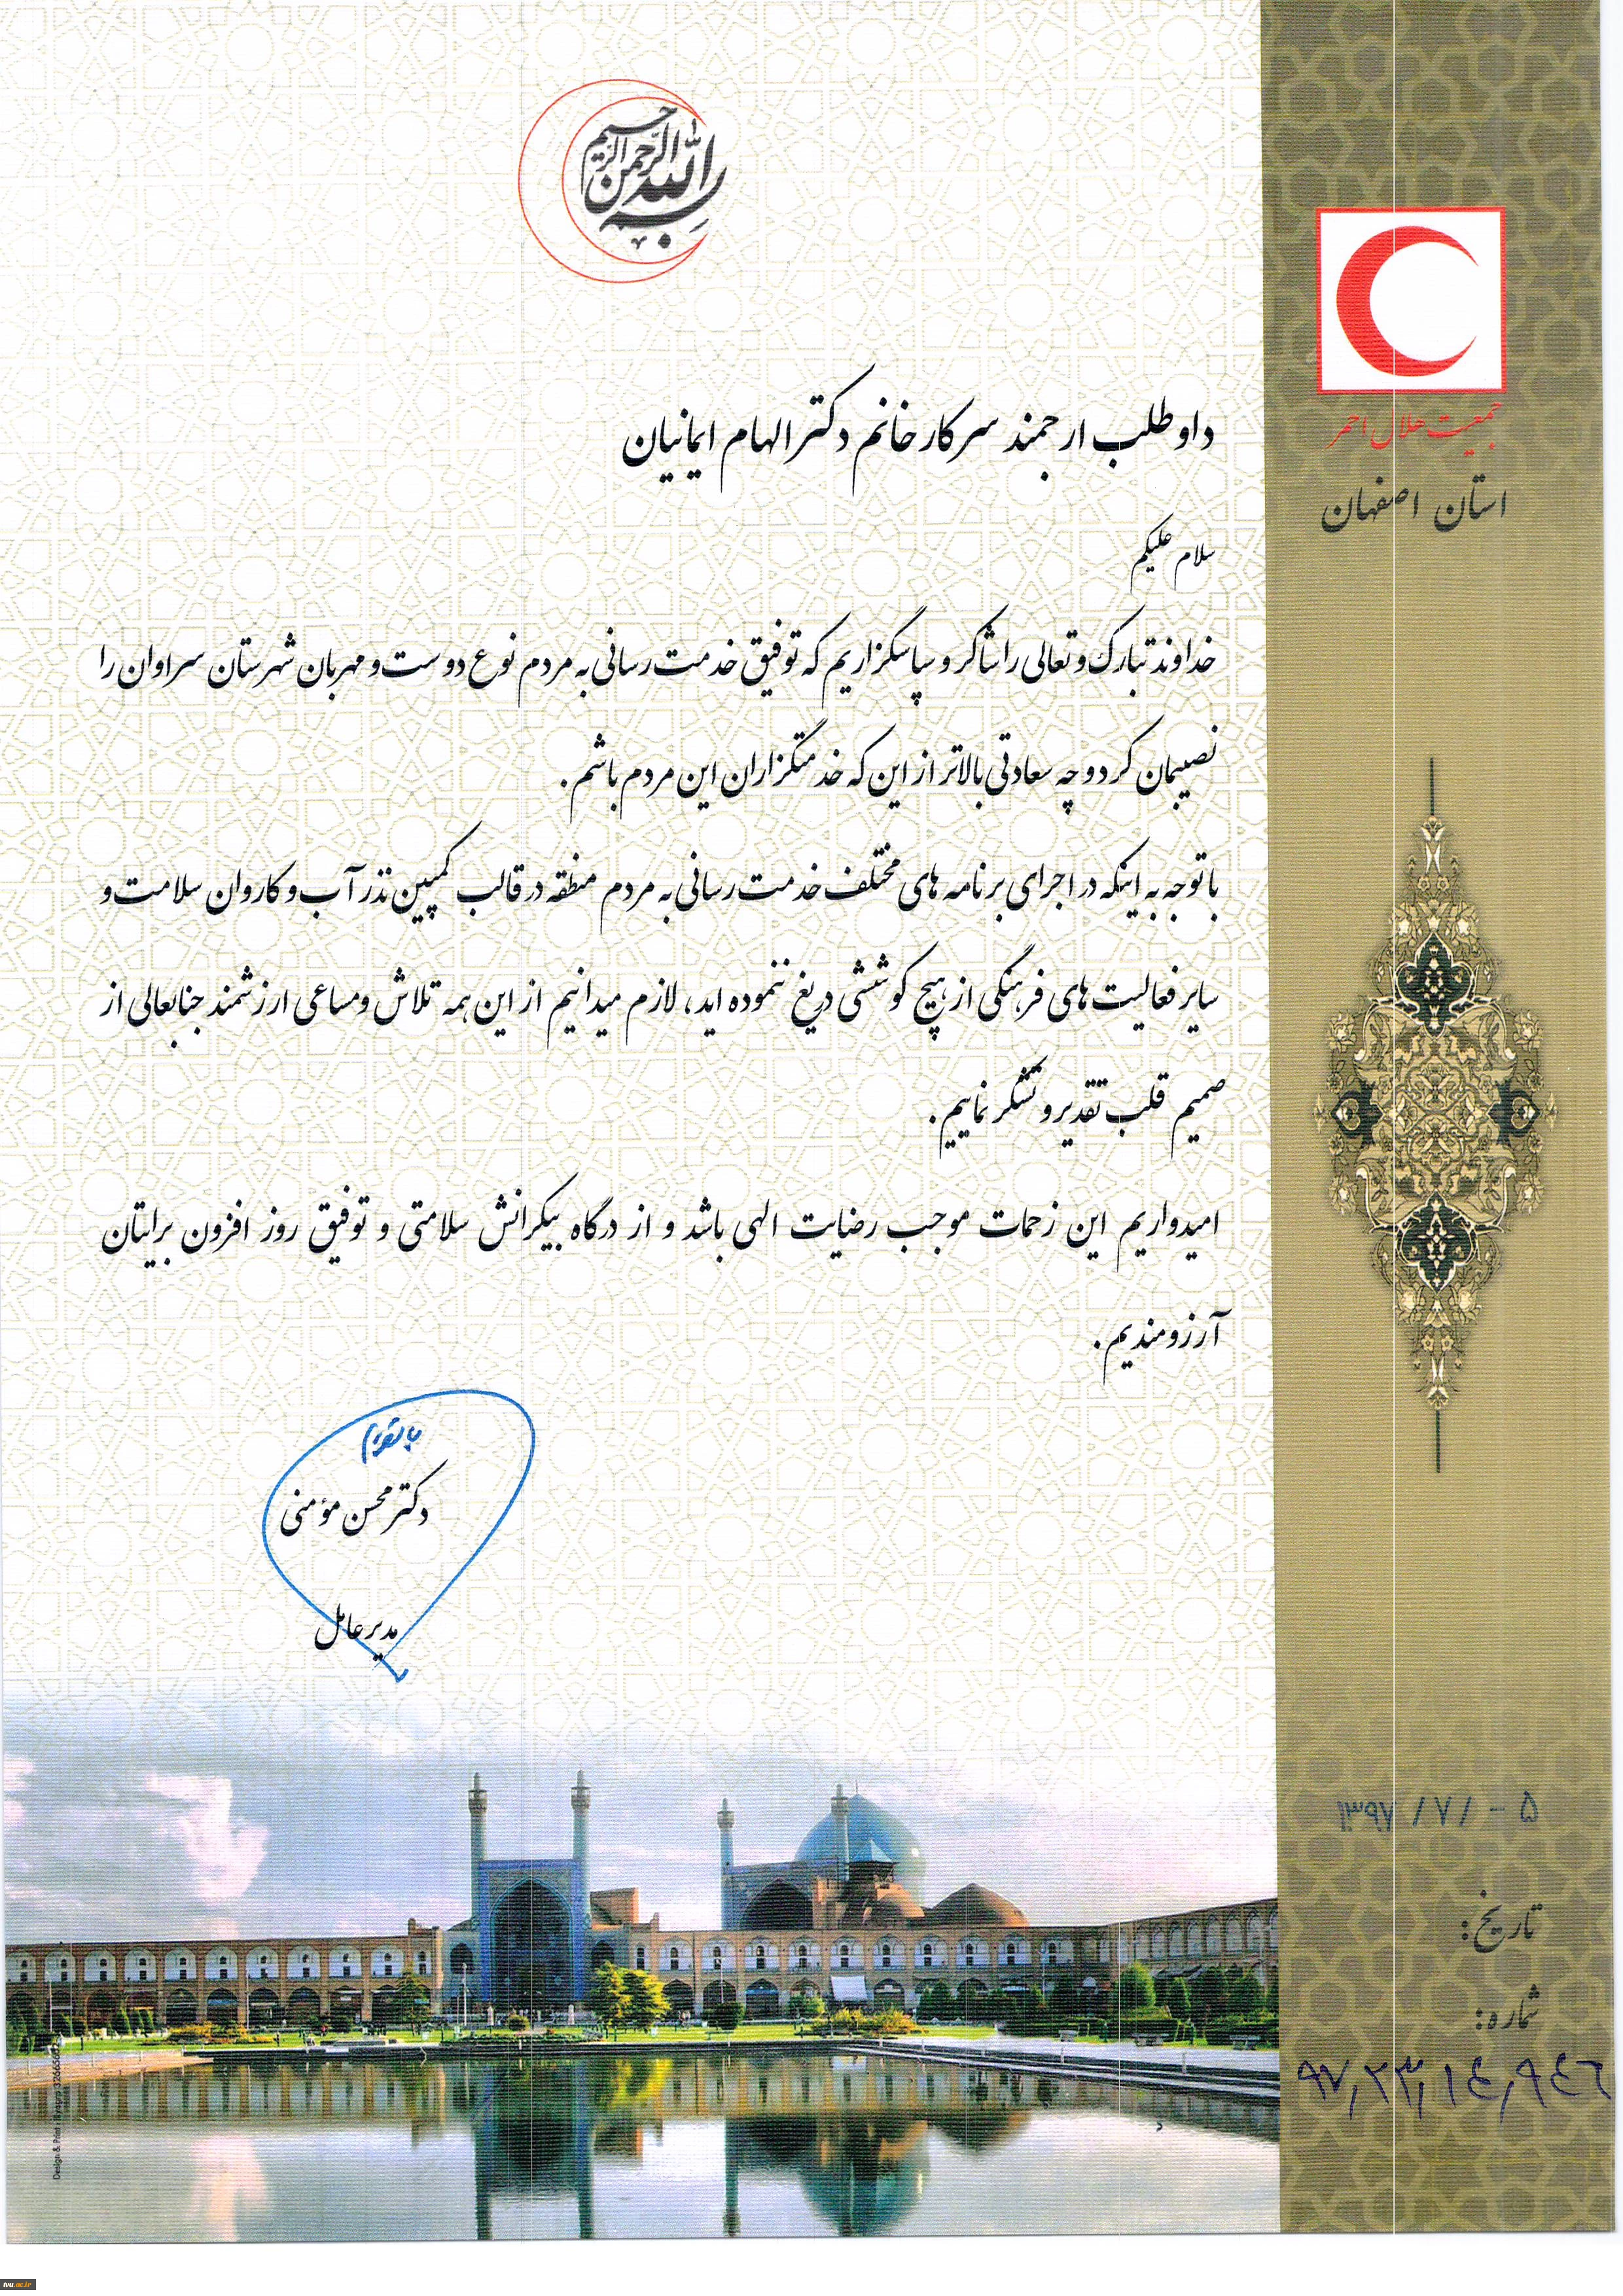 بسم الله الرحمن الرحیم
جمعیت هلال احمر
استان اصفهان
داوطلب ارجمند سرکار خانم دکتر الهام ایمانیان
سلام علیکم
خداوند تبارک و تعالی را شاکر و سپاسگزاریم که توفیق خدمت رسانی به مردم نوع دوست و مهربان شهرستان سراوان را
نصیبمان کرد و چه سعادتی بالاتر از این که خدمتگزاران این مردم باشم.
با توجه به اینکه در اجرای برنامه های مختلف خدمت رسانی به مردم منطقه در قالب کمپین نذر آب و کاروان سلامت و
سایر فعالیت های فرهنگی از هیچ کوششی دریغ ننموده اید، لازم میدانیم از این همه تلاش و مساعی ارزشمند جنابعالی از
صمیم قلب تقدیر و تشکر نماییم.
امیدواریم این زحمات موجب رضایت الهی باشد و از درگاه بیکرانش سلامتی و توفیق روز افزون برایتان
آرزومندیم.
دکتر محسن مؤمنی
مدیر عامل
۱۳۹۷ / ۷ / - ۵
تاریخ:
شماره:
۹۷٫۲۳٫۱۴٫۹۴۶
Design & Print
tvu.ac.ir